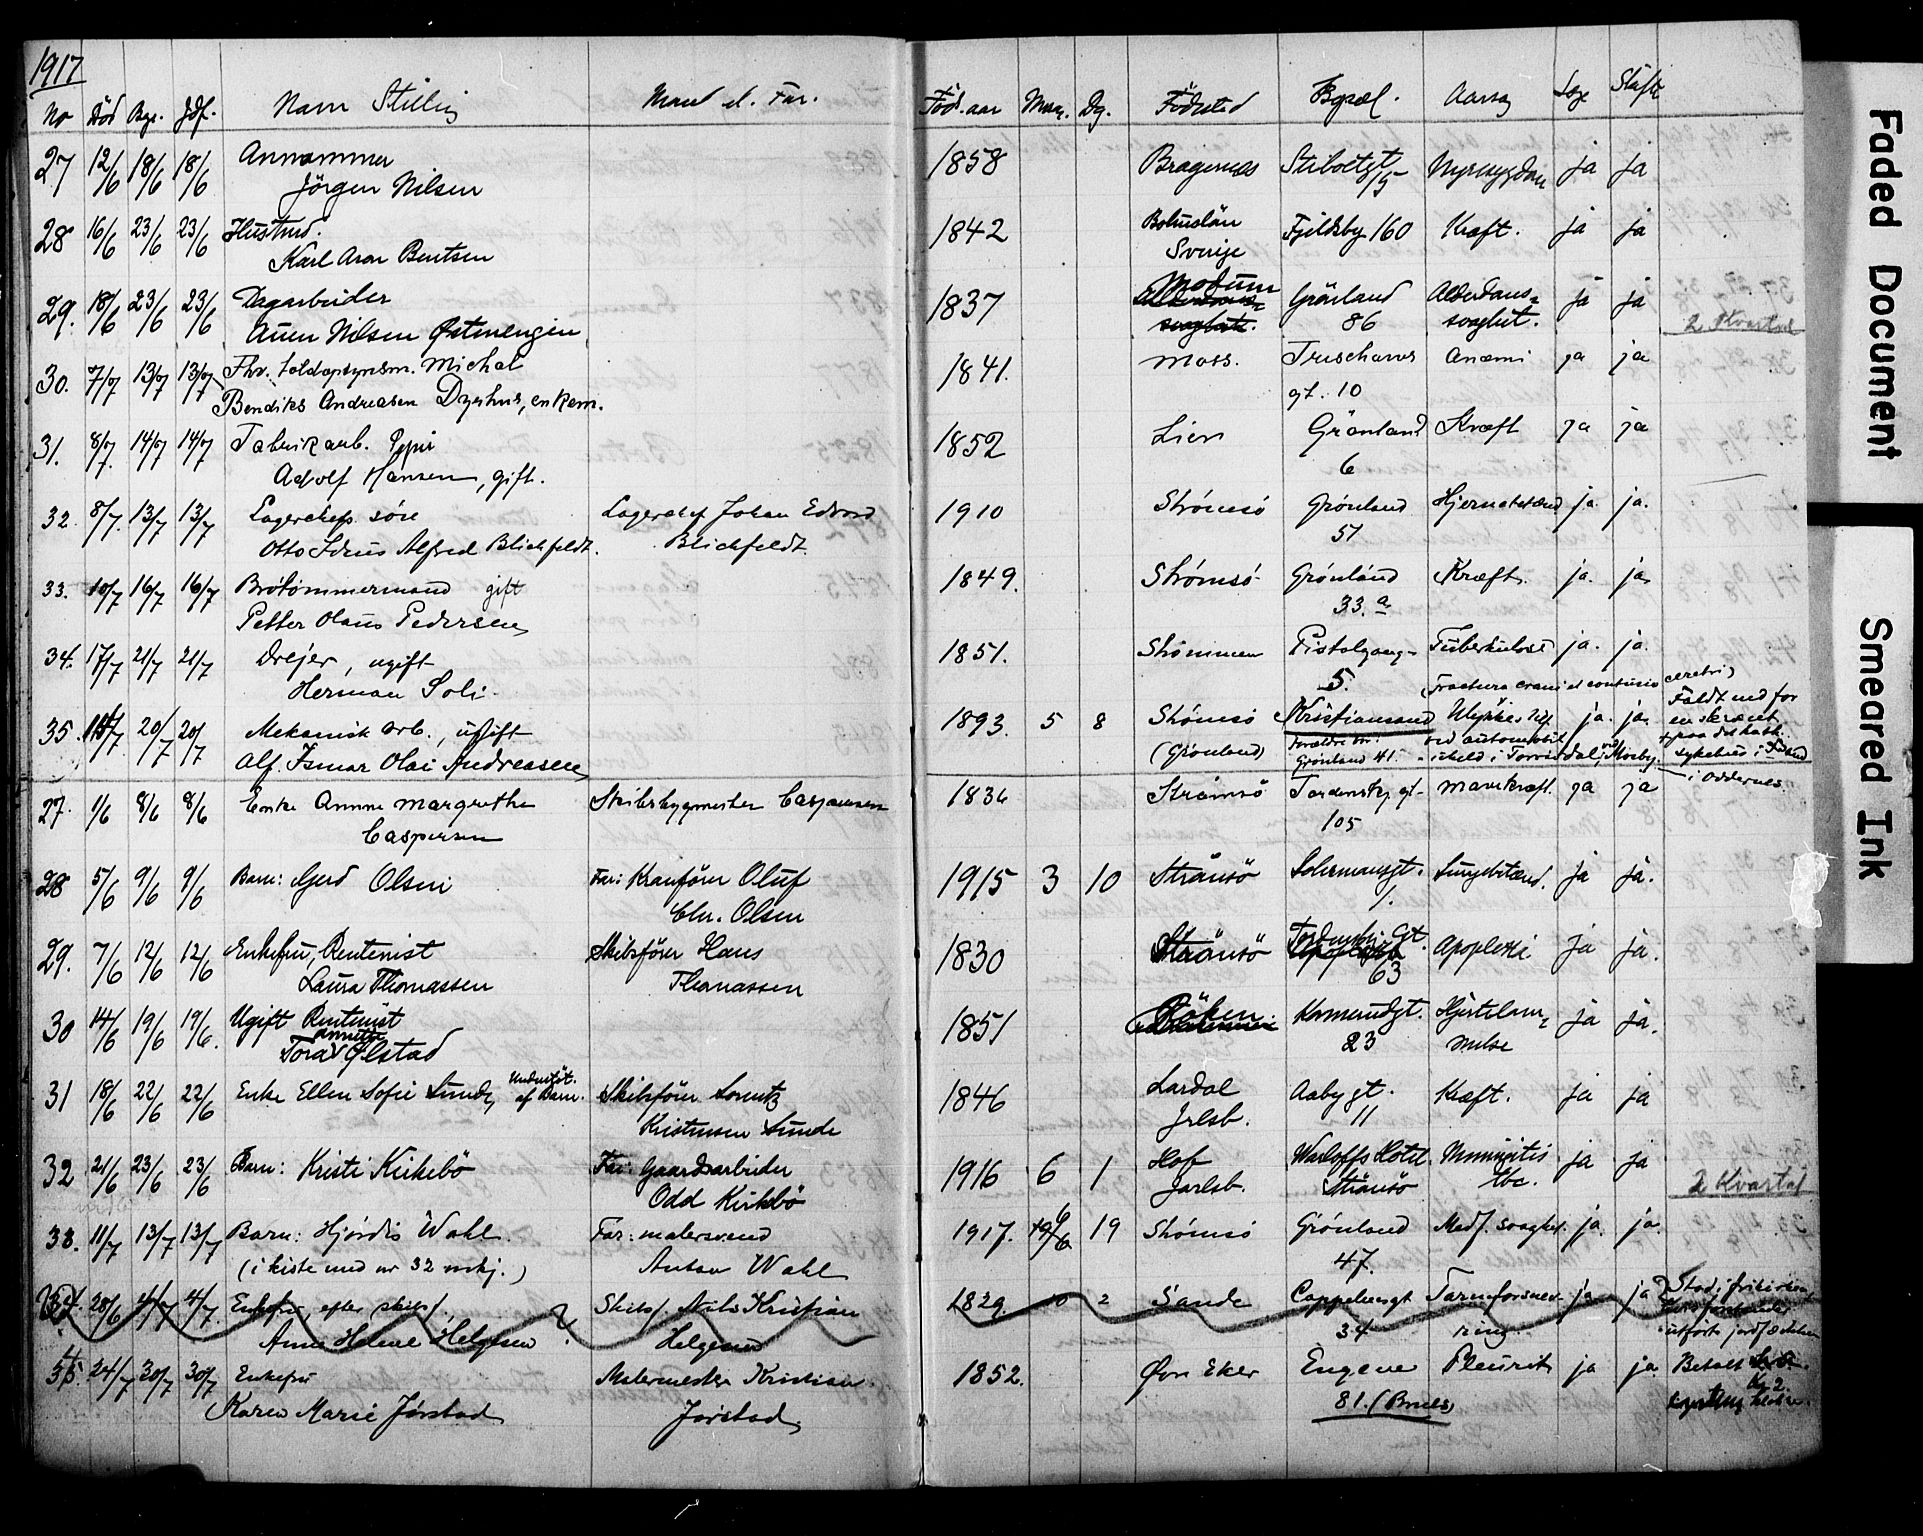 1917
No Död Begr. Jdf. Navn Stilling Mand el. Far. Föds.aar Maan. Dg. Födested Bopæl. Aarsag Læge Skifte
27 12/6 18/6 18/6 Jörgen Nilsen 1858 Bragernes ja ja
28 16/6 23/6 23/6 Hustrud.
Karl Aron Bentsen 1842 Bohuslän
Sverije Fjeldsby 160 Kræft. ja ja
29. 18/6 23/6 23/6 Dagarbeider
Nilsen Østmengen 1837 Modum
Grönland
86 Alderdoms-
svaghet. ja ja
2 Kvartal
30. 7/07 13/07 13/07 Fhv. toldopsynsm. Michal
Bendiks Andreasen Dyrhus, enkem. 1841. Moss.
gt. 10 Anæmi ja ja
31. 8/7 14/07 14/07 Fabrikarb. Papir
Adolf Hansen, gift. 1852 Lier Grönland
6 Kræft ja ja
32. 8/7. 13/7 13/7 Lagerchefs sön
Otto Alfred Blichfeldt. Lagerchef Johan Edvard
Blichfeldt 1910 Strömsö Grönland
51 Hjernebetænd ja. ja.
33. 10/7 16/7 16/7 Brotömmermand gift
Petter Olaus Pedersen 1849. Strömsö Grönland
33. a Kræft. ja. ja
34. 17/7 21/7 21/7 Drejer, ugift
Herman Soli. 1851. Strömmen Pistolgang-
5. Tuberkulose ja. ja.
35. 20/7 20/7 Mekanisk arb., ugift
Alf. Ismar Olai Andreasen 1893. 5 8 Strömsö
(Grönland) Kristiansand
Forældre br:
Grönland 41. (Fractura cranii et contusio cerebri)
ved automobil
uheld i Torridal, ved Mosby. ja. ja.
Faldt ned for
en skrænt
paa det kath.
sykehus i
i Oddernes.
27. 1/6 8/6 8/6 Enke Annne Margrethe
Caspersen Skibsbygmester Caspersen 1836 Strömsö Tordenskj. gt-
105 Mavekræft. ja ja
28 5/6 9/6 9/6 Barn: Gerd Olsen Far: Kranförer Oluf
Chr. Olsen 1915 3 10 Strömsö
1. Lungebetænd. ja ja.
29. 7/6 12/6 12/6 Enkefru, Rentenist
Laura Thomassen Skibsförer Hans
Thomassen 1830 Strömsö Tordenskj. Gt.
63 Apoplexi ja ja.
30 14/6 19/6 19/6. Ugift Rentenist
Annette
Tora Ølstad 1851 Röken Kormerudgt.
23 Hjertelam-
melse ja ja.
31 18/6 22/6 22/6 Enke Ellen Sofie Sunde, Understöt.
af Barn. Skibsförer Lorentz
Kristensen Sunde 1846 Lardal
Jrlsb. Aabygt.
11 Kræft. ja ja
32 21/6 23/6 23/6 Barn: Kristi Kirkebö Far: Gaardsarbeider
Odd Kirkebö 1916 6 1 Hof
Jarlsb. Hotel
Strömsö Meningitis
tbc. ja ja
2 Kvartal
33. 11/7 13/7 13/7 Barn: Hjördis Wahl.
(i kiste med nr 32 mkj.) Far: malersvend
Anton Wahl 1917. 19 Strömsö Grönland
47. Medf. svaghet. ja. ja.
28/6 4/7 4/7. Enkefru efter skibsf.
Anne Helene Helgesen ? Skibsf. Nils Kristian
Helgesen 1829. 10 2 Sande Cappelensgt
34 Tarmforsnev-
ring. ja ja ?
35. 24/7 30/7 30/7 Enkefru
Karen Marie Jörstad Malermester Kristian
Jörstad 1852. Øvre Eker Engene
81. Pleurit ja ja. Betalt
Kr 2.
Faded Document
Smeared Ink